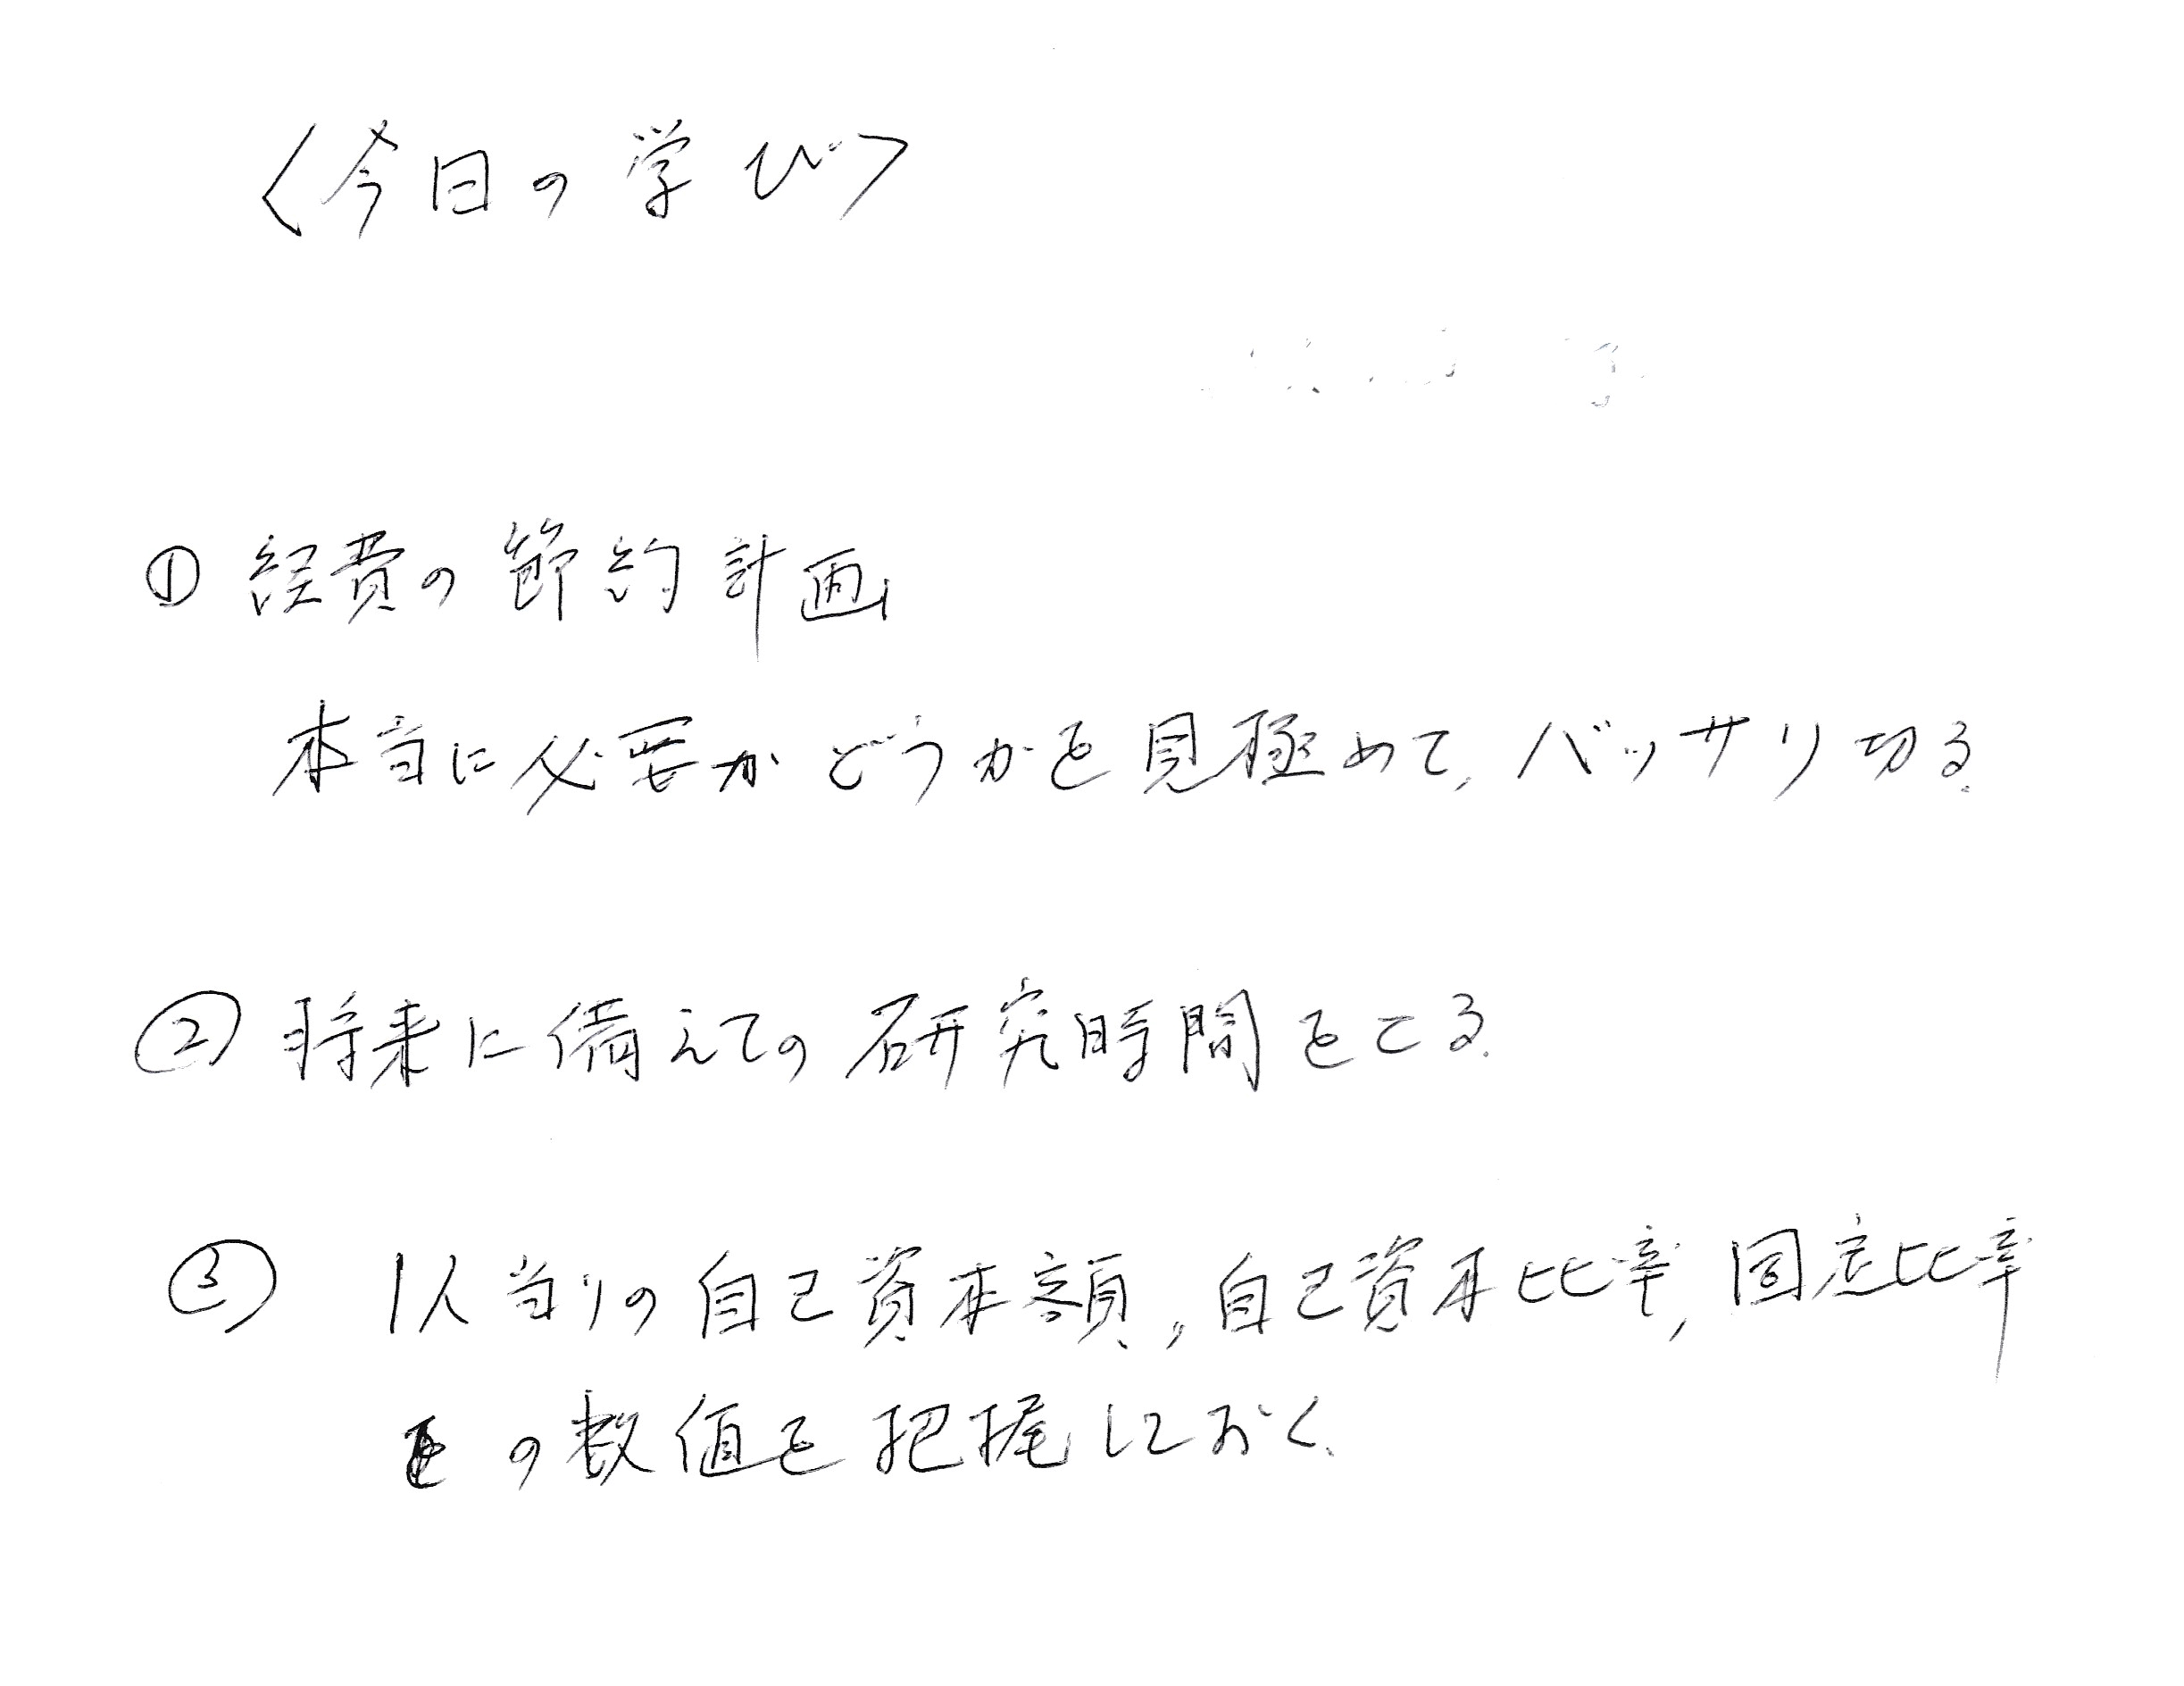 〈今日の学び〉
① 経費の節約計画
本当に必要かどうかを見極めて、バッサリ切る。
② 将来に備えての研究時間をとる。
③ 1人当りの自己資本額、自己資本比率、固定比率
の数値を把握しておく。